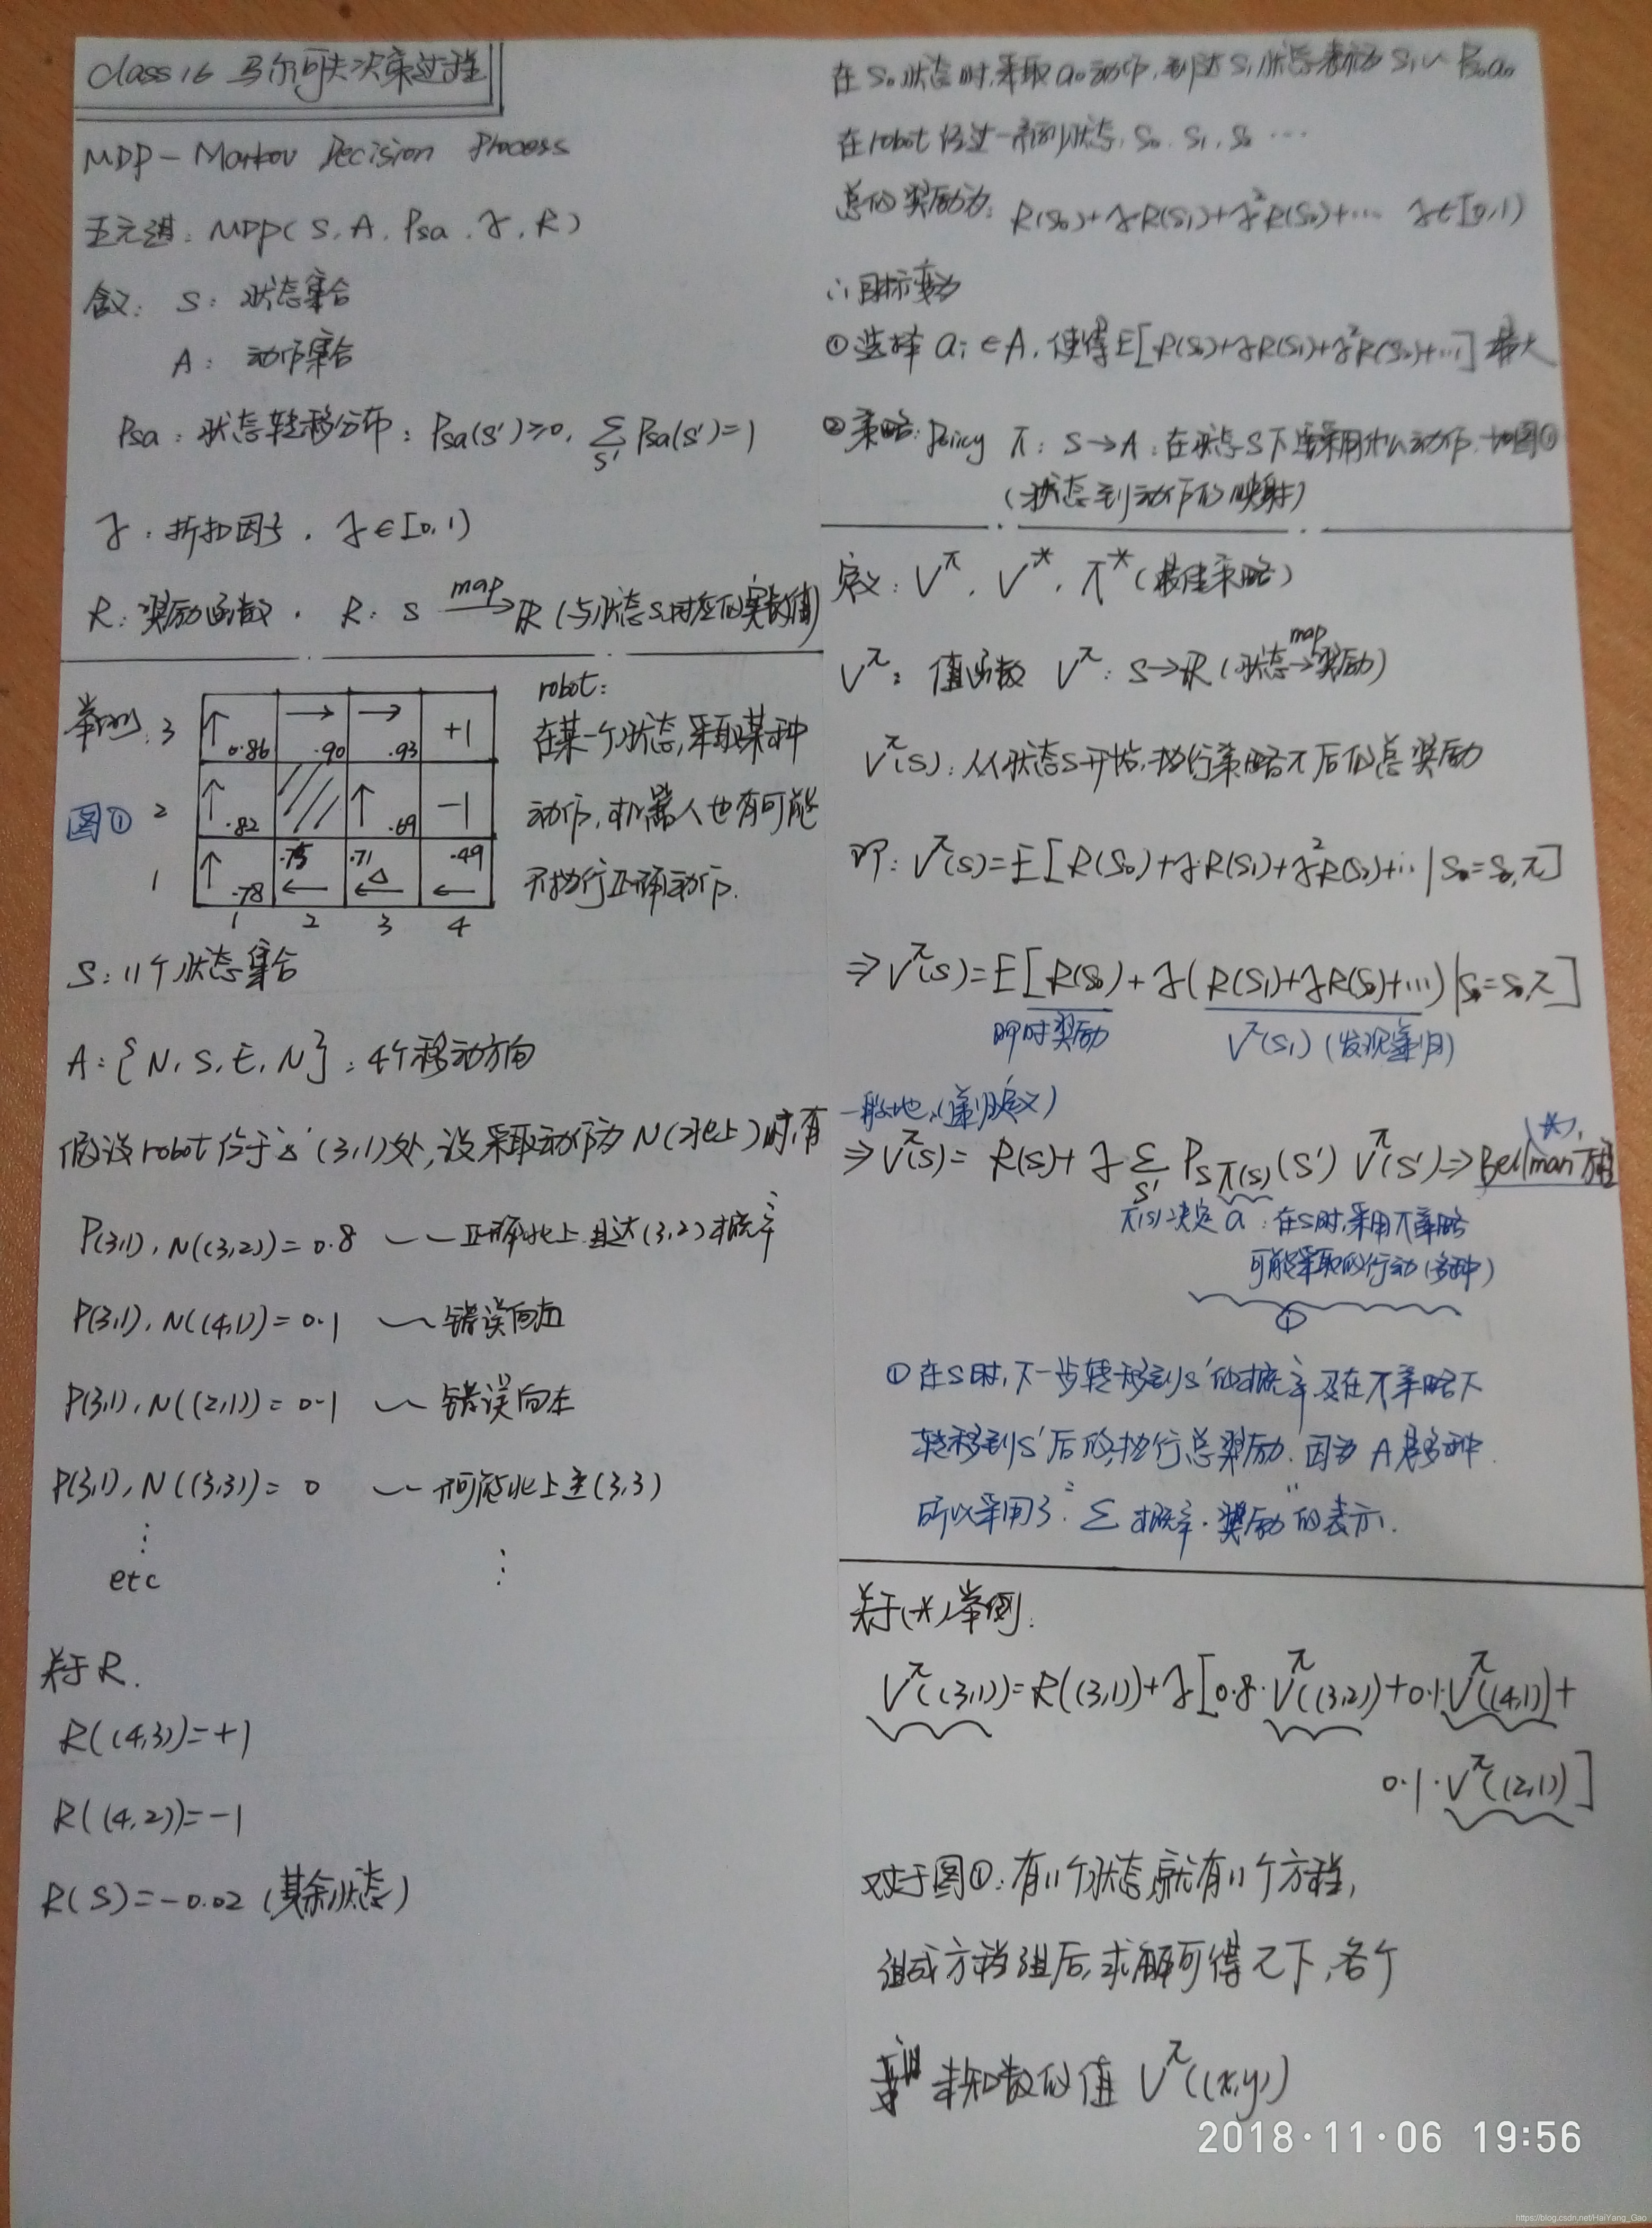 Class 16 马尔可夫决策过程
MDP - Markov Decision Process
五元组: MDP( S, A, Psa, γ, R )
含义: S: 状态集合
A: 动作集合
Psa: 状态转移分布: Psa(s')≥0, Σ_{s'} Psa(s')=1
γ: 折扣因子, γ∈[0,1)
R: 奖励函数. R: S —map→ ℝ (与状态S对应的实数值)
举例: 3 ↑ 0.86 → .90 → .93 +1
图① 2 ↑ .82 ↑ .69 -1
1 ↑ .78 .75 ← .71 ← .49 ←
1 2 3 4
robot:
在某一个状态,采取某种
动作,机器人也有可能
不执行正确动作.
S: 11个状态集合
A: {N, S, E, N}: 4个移动方向
假设robot位于 (3,1)处,设采取动作为N(北上)时,有
P(3,1), N((3,2))=0.8 —— 正确北上且达(3,2)概率
P(3,1), N((4,1))=0.1 — 错误向右
P(3,1), N((2,1))=0.1 — 错误向左
P(3,1), N((3,3))= 0 —— 不可能北上至(3,3)
⋮
etc ⋮
关于R.
R((4,3))=+1
R((4,2))=-1
R(S)=-0.02 (其余状态)
在S₀状态时,采取a₀动作,到达S₁状态表示为S₁~Ps₀a₀
在robot经过一系列状态, S₀, S₁, S₂ ⋯
总的奖励为: R(S₀)+γR(S₁)+γ²R(S₂)+⋯ γ∈[0,1)
∴目标变为
①选择 aᵢ∈A, 使得E[R(S₀)+γR(S₁)+γ²R(S₂)+⋯]最大
②策略: policy π: S→A: 在状态S下应采用什么动作. 如图①
(状态到动作的映射)
定义: V^π, V^*, π^* (最佳策略)
V^π: 值函数 V^π: S→ℝ (状态 —map→ 奖励)
V^π(S): 从状态S开始,执行策略π后的总奖励
即: V^π(S)=E[R(S₀)+γR(S₁)+γ²R(S₂)+⋯|S₀=S,π]
⇒V^π(S)=E[R(S₀)+γ(R(S₁)+γR(S₂)+⋯)|S₀=S,π]
即时奖励 V^π(S₁) (发现递归)
一般地, (递归定义) (*).
⇒V^π(S)= R(S)+γ Σ_{s'} P_{Sπ(S)}(S') V^π(S')⇒Bellman方程
π(S)决定a: 在S时,采用π策略
可能采取的行动(多种)
①
①在S时,下一步转移到S'的概率及在π策略下
转移到S'后的执行总奖励. 因为A是多种.
所以采用了"Σ概率·奖励"的表示.
关于(*)举例:
V^π((3,1))=R((3,1))+γ[0.8·V^π((3,2))+0.1·V^π((4,1))+
0.1·V^π((2,1))]
对于图①: 有11个状态就有11个方程,
组成方程组后,求解可得π下,各个
未知数的值 V^π((x,y))
2018·11·06 19:56
https://blog.csdn.net/HaiYang_Gao